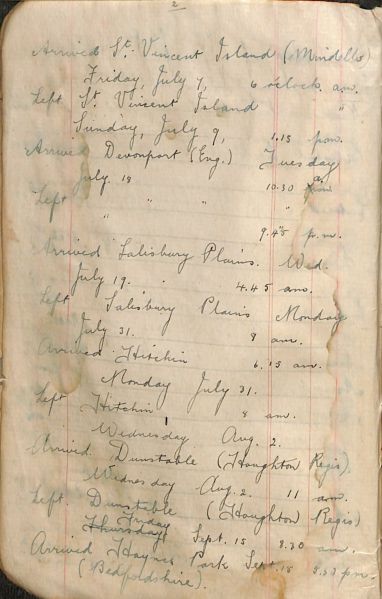 2
Arrived St. Vincent Island (Mindello
Friday, July 7, 6 o'clock am.
Left St. Vincent Island "
Sunday, July 9, 1.15 p.m.
Arrived Devonport (Eng.) Tuesday
July 18 10.30 am
Left " " " "
9.45 p.m.
Arrived Salisbury Plains. Wed.
July 19. 4.45 am.
Left Salisbury Plains Monday
July 31. 8 am.
Arrived Hitchin 6.15 am.
Monday July 31.
Left Hitchin 8 am.
Wednesday Aug. 2.
Arrived Dunstable (Houghton Regis).
Wednesday Aug. 2. 11 am.
Left Dunstable (Houghton Regis)
Friday
Thursday Sept. 15 8.30 am.
Arrived Haynes Park Sept. 15 p.m.
(Bedfordshire).